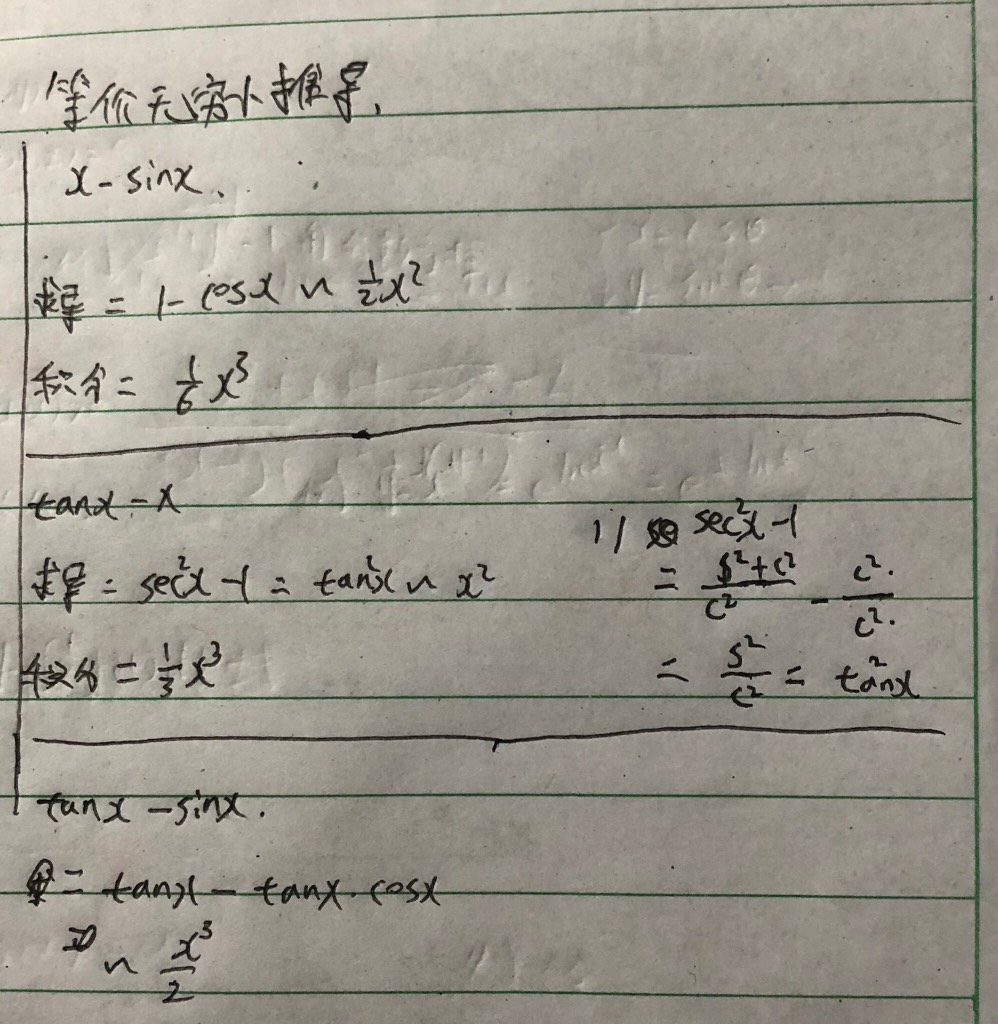 等价无穷小推导,
x - sinx.
求导 = 1 - cosx ~ 1/2 x²
积分 = 1/6 x³
tanx - x
求导 = sec²x - 1 = tan²x ~ x²
积分 = 1/3 x³
1) sec²x - 1
= (s² + c²)/c² - c²/c²
= s²/c² = tan²x
tanx - sinx.
= tanx - tanx · cosx
~ x³/2